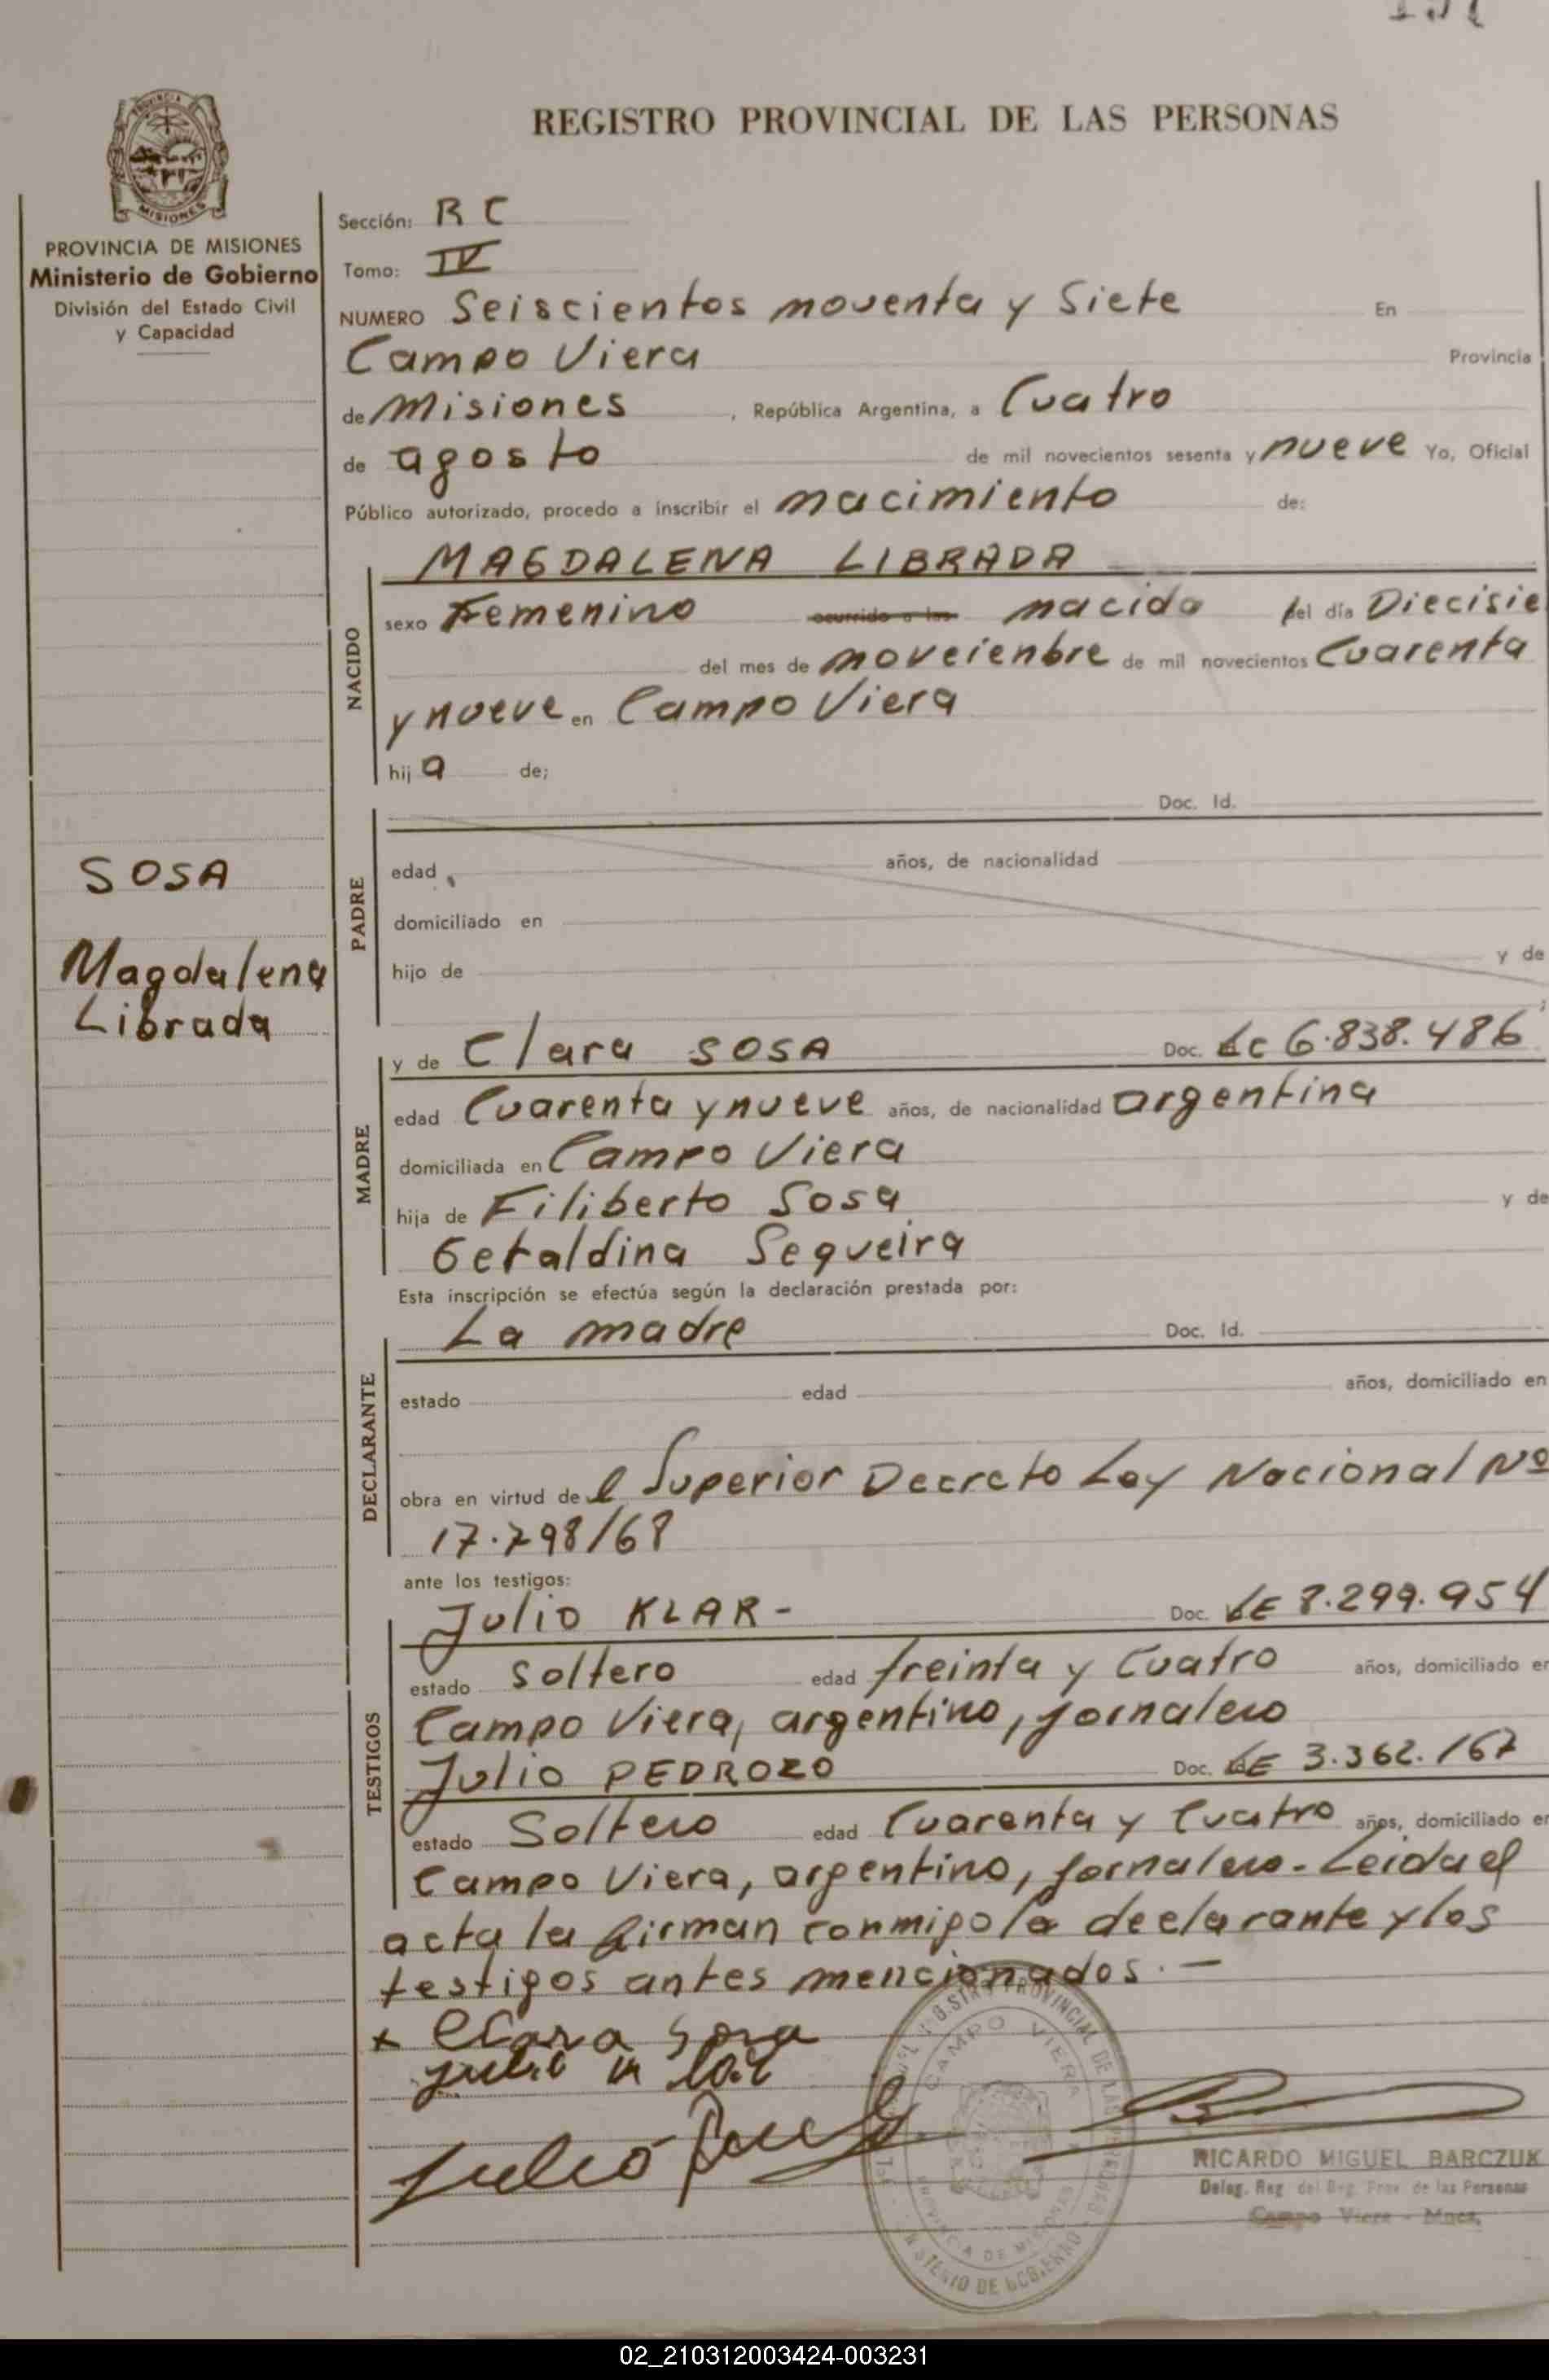 REGISTRO PROVINCIAL DE LAS PERSONAS
PROVINCIA DE MISIONES
Ministerio de Gobierno
División del Estado Civil
y Capacidad
SOSA
Magdalena
Librada
Sección: R C
Tomo: IV
NUMERO Seiscientos noventa y Siete En
Campo Viera Provincia
de Misiones , República Argentina, a Cuatro
de agosto de mil novecientos sesenta y nueve Yo, Oficial
Público autorizado, procedo a inscribir el nacimiento de:
NACIDO
MAGDALENA LIBRADA
sexo Femenino ocurrido a las nacida del día Diecisie
del mes de noveienbre de mil novecientos Cuarenta
y nueve en Campo Viera
hij a de;
PADRE
Doc. Id.
edad años, de nacionalidad
domiciliado en
hijo de y de
MADRE
y de Clara SOSA Doc. LC 6.838.486
edad Cuarenta y nueve años, de nacionalidad argentina
domiciliada en Campo Viera
hija de Filiberto Sosa y de
Geraldina Sequeira
Esta inscripción se efectúa según la declaración prestada por:
DECLARANTE
La madre Doc. Id.
estado edad años, domiciliado en
obra en virtud de l Superior Decreto Ley Nacional Nº
17.798/68
ante los testigos:
TESTIGOS
Julio KLAR - Doc. LE 8.299.954
estado soltero edad treinta y Cuatro años, domiciliado en
Campo Viera, argentino, jornalero
Julio PEDROZO Doc. LE 3.362.167
estado Soltero edad Cuarenta y Cuatro años, domiciliado en
Campo Viera, argentino, jornalero - Leida el
acta la firman conmigo la declarante y los
testigos antes mencionados. -
x Clara Sosa
Julio
Julio
CAMPO VIERA
PROVINCIA DE MISIONES
RICARDO MIGUEL BARCZUK
Deleg. Reg. del Reg. Prov. de las Personas
Campo Viera - Mnes.
02_210312003424-003231